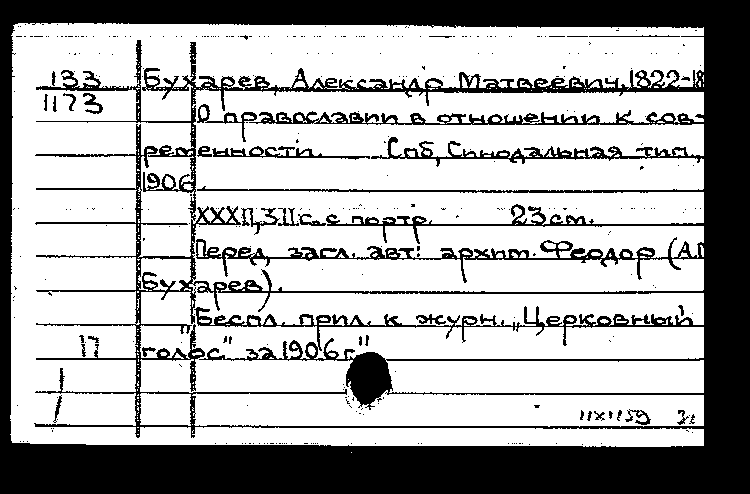 133 Бухарев, Александр Матвеевич, 1822-18
1173
О православии в отношении к сов-
ременности. Спб, Синодальная тип.,
1906.
XXXII, 311 с. с портр. 23 cm.
Перед. загл. авт: архит. Феодор (А.М
Бухарев).
"Беспл. прил. к журн. „Церковный
17 голос" за 1906 г."